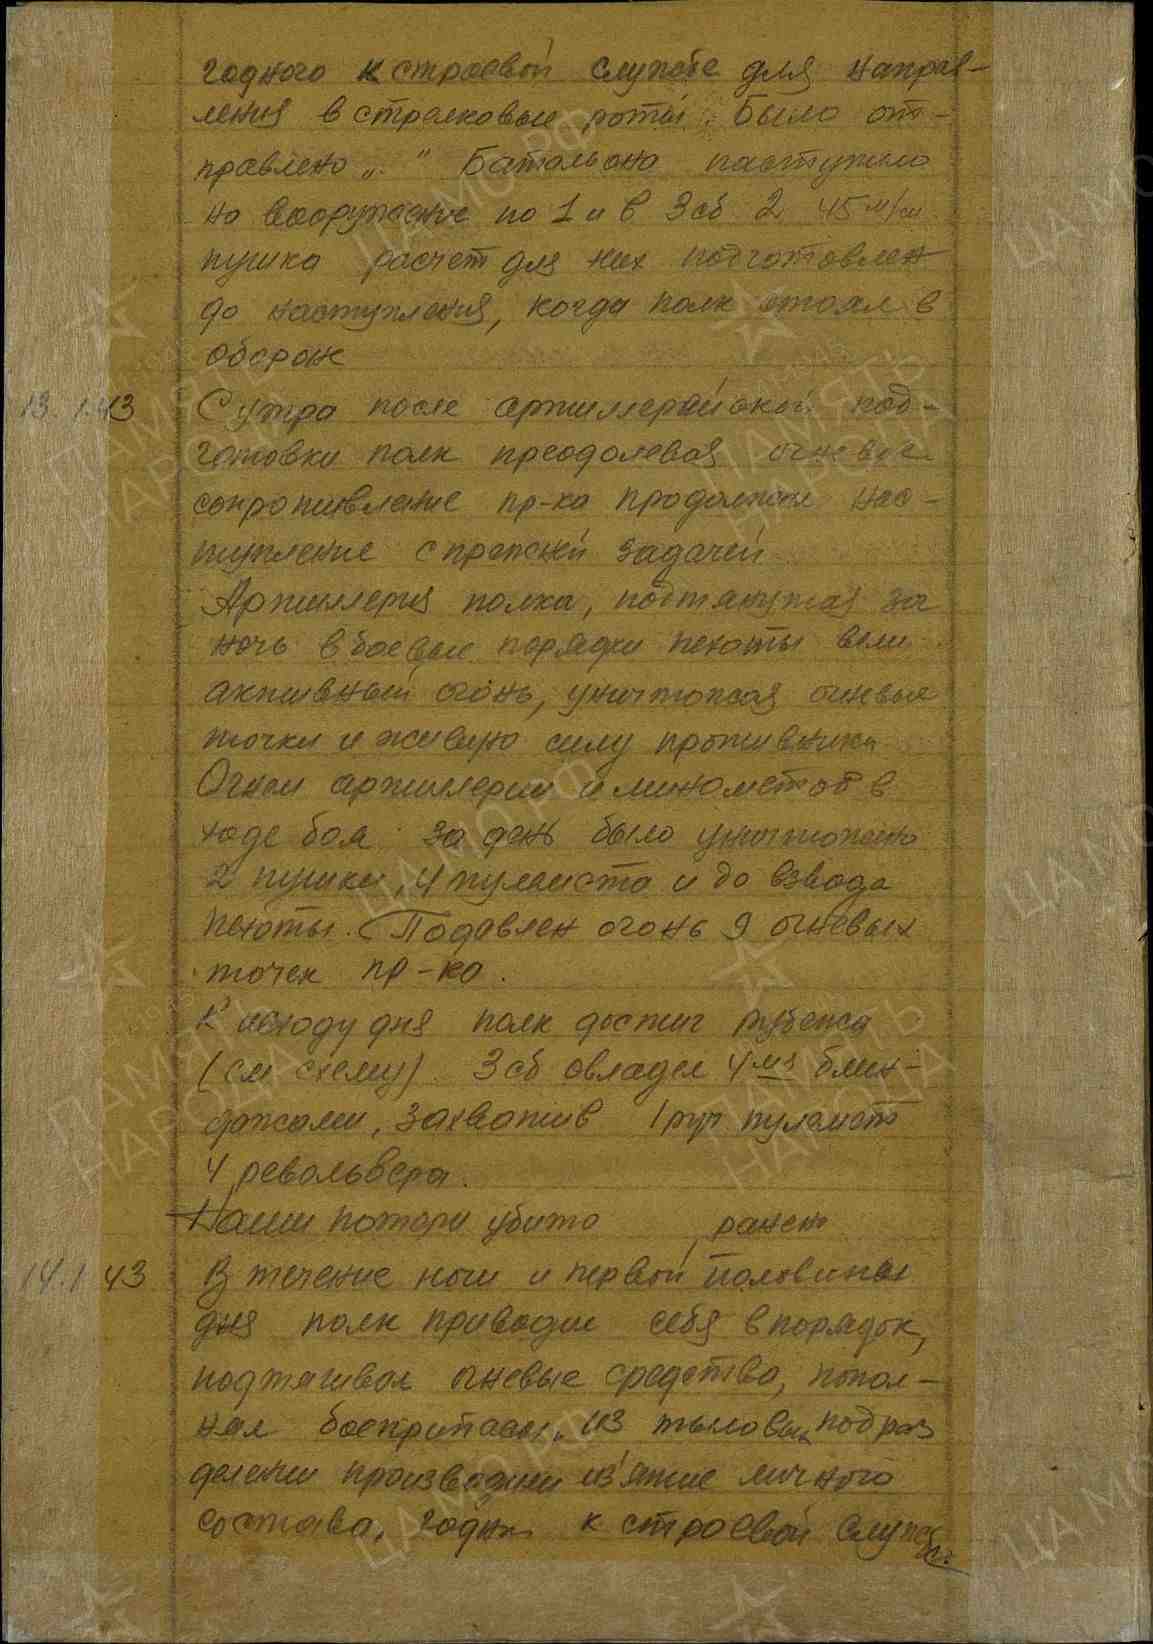 годного к строевой службе для направ-
ления в стрелковые роты. Было от-
правлено „ " Батальона поступило
на вооружение по 1 и в 3 сб 2 45 м/м
пушка расчет для них подготовлен
до наступления, когда полк стоял в
обороне
13.1.43 С утра после артиллерийской под-
готовки полк преодолевая огневое
сопротивление пр-ка продолжал нас-
тупление с прежней задачей
Артиллерия полка, подтянутая за
ночь в боевые порядки пехоты вели
активный огонь, уничтожая огневые
точки и живую силу противника
Огнем артиллерии и минометов в
ходе боя за день было уничтожено
2 пушки, 4 пулемета и до взвода
пехоты. Подавлен огонь 9 огневых
точек пр-ка.
К исходу дня полк достиг рубежа
(см схему) 3 сб овладел 4мя блин-
дажами, захватив 1 руч пулемет
4 револьвера.
Наши потери убито ранен
14.1.43 В течение ночи и первой половины
дня полк приводил себя в порядок,
подтягивал огневые средства, попол-
нял боеприпасы, из тыловых подраз
делении производили из'ятие личного
состава, годн к строевой службе.
ЦАМО.РФ
ПАМЯТЬ
НАРОДА